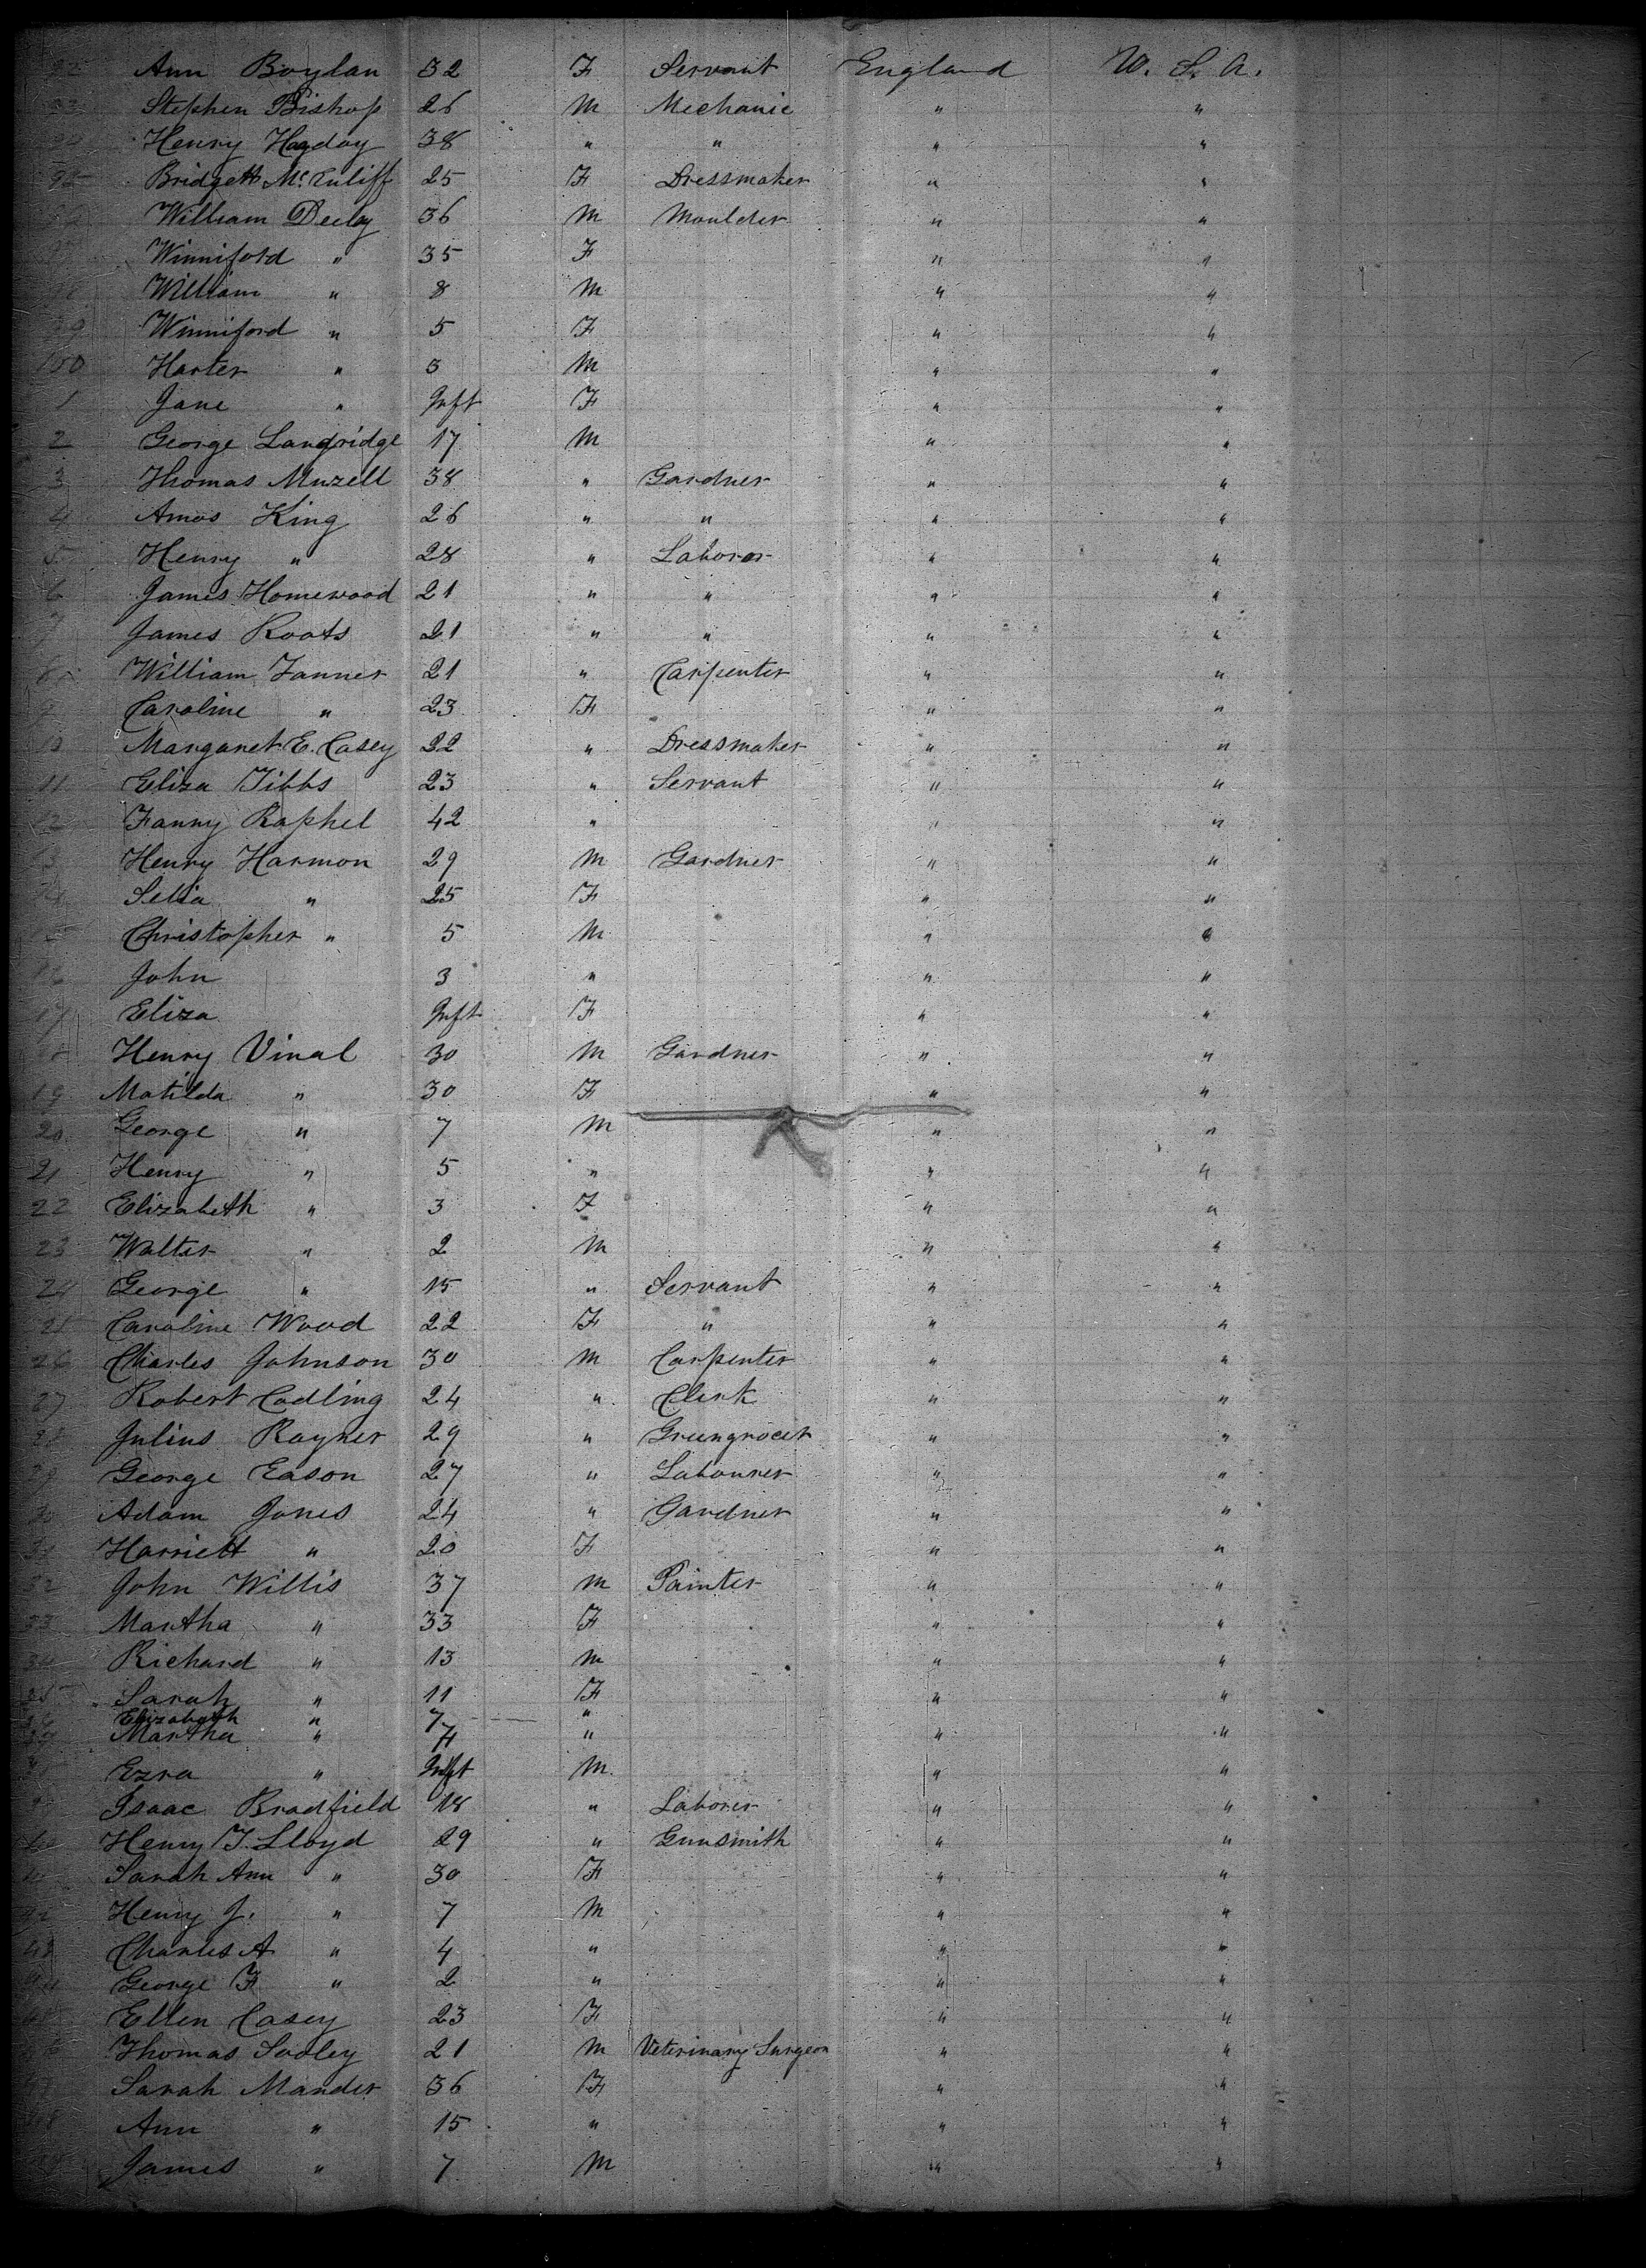 Ann Boylan 32 F Servant England U. S. A.
93 Stephen Bishop 26 M Mechanic " "
94 Henry Hagday 38 " " " "
95 Bridgett 25 F Dressmaker " "
William Deeley 36 M Moulder " "
Winniford " 35 F " "
William " 8 M " "
99 Winniford " 5 F " "
100 Harter " 3 M " "
1 Jane " Inft F " "
2 George Langridge 17 M " "
3 Thomas Muzell 38 " Gardner " "
4 Amos King 26 " " " "
5 Henry " 28 " Laborer " "
6 James Homewood 21 " " " "
7 James Roots 21 " " " "
8 William Tanner 21 " Carpenter " "
9 Caroline " 23 F " "
10 Margaret E. Casey 22 " Dressmaker " "
11 Eliza Tibbs 23 " Servant " "
12 Fanny Raphel 42 " " "
13 Henry Harmon 29 M Gardner " "
14 Selia " 25 F " "
15 Christopher " 5 M " "
16 John 3 " " "
17 Eliza Inft F " "
18 Henry Vinal 30 M Gardner " "
19 Matilda " 30 F " "
20 George " 7 M " "
21 Henry " 5 " " "
22 Elizabeth " 3 F " "
23 Walter " 2 M " "
24 George " 15 " Servant " "
25 Caroline Wood 22 F " " "
26 Charles Johnson 30 M Carpenter " "
27 Robert Codling 24 " Clerk " "
28 Julius Rayner 29 " Greengrocer " "
29 George Eason 27 " Labourer " "
30 Adam Jones 24 " Gardner " "
31 Harriett " 20 F " "
32 John Willis 37 M Painter " "
33 Martha " 33 F " "
34 Richard " 13 M " "
35 Sarah " 11 F " "
36 Elizabeth " 7 "
37 Martha " 4 " " "
Ezra " Inft M. " "
Isaac Bradfield 18 " Laborer " "
40 Henry T. Lloyd 29 " Gunsmith " "
Sarah Ann " 30 F " "
42 Henry J. " 7 M " "
43 Charles A " 4 " " "
44 George F " 2 " " "
45 Ellen Casey 23 F " "
46 Thomas Sooley 21 M Veterinary Surgeon " "
47 Sarah Mander 36 F " "
48 Ann " 15 " " "
James " 7 M " "